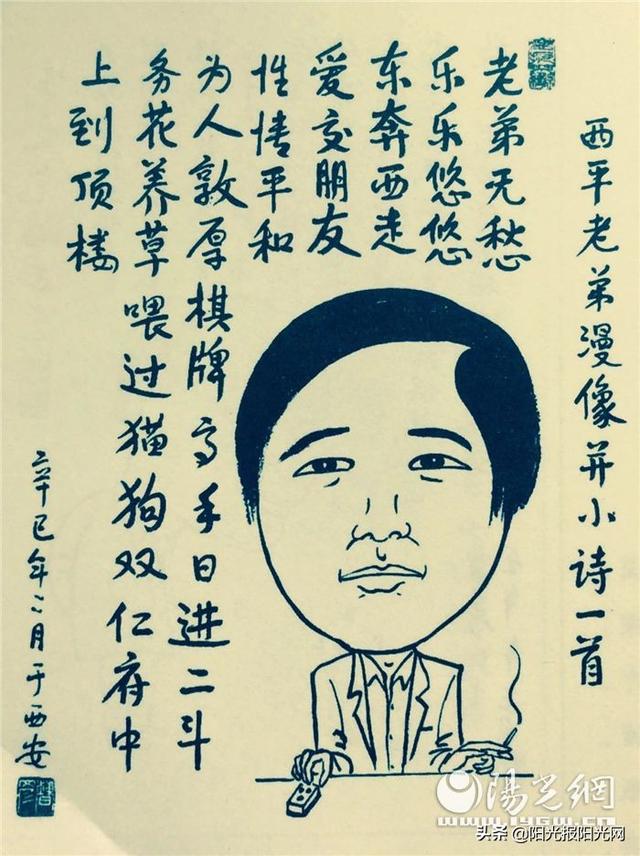 西平老弟漫像并小诗一首
老弟无愁
乐乐悠悠
东奔西走
爱交朋友
性情平和
为人敦厚棋牌高手日进二斗
务花养草喂过猫狗双仁府中
上到顶楼
辛巳年二月于西安
陽光網
www.iygw.cn
头条 @阳光报阳光网